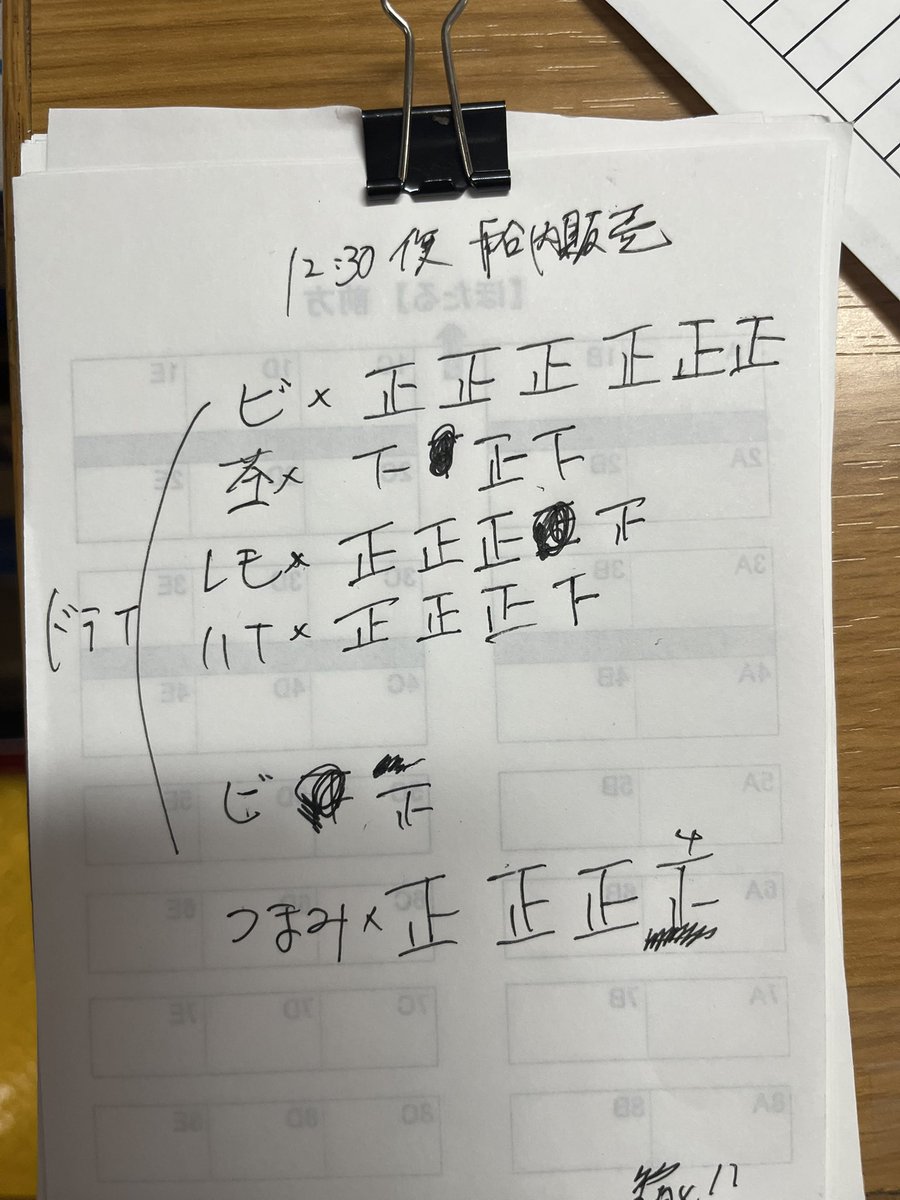 12:30 便 船内販売
ビ× 正 正 正 正 正 正
茶× 下 正 下
レモ× 正 正 正 下
ドライ
ハイ× 正 正 正 下
ビ 正
4
つまみ× 正 正 正 止
【ほたる】前方
1A 1B 1C 1D 1E
2A 2B 2C 2D 2E
3A 3B 3C 3D 3E
4A 4B 4C 4D 4E
5A 5B 5E
6A 6B 6C 6D 6E
7A 7B 7C 7D 7E
8A 8B 8C 8D 8E